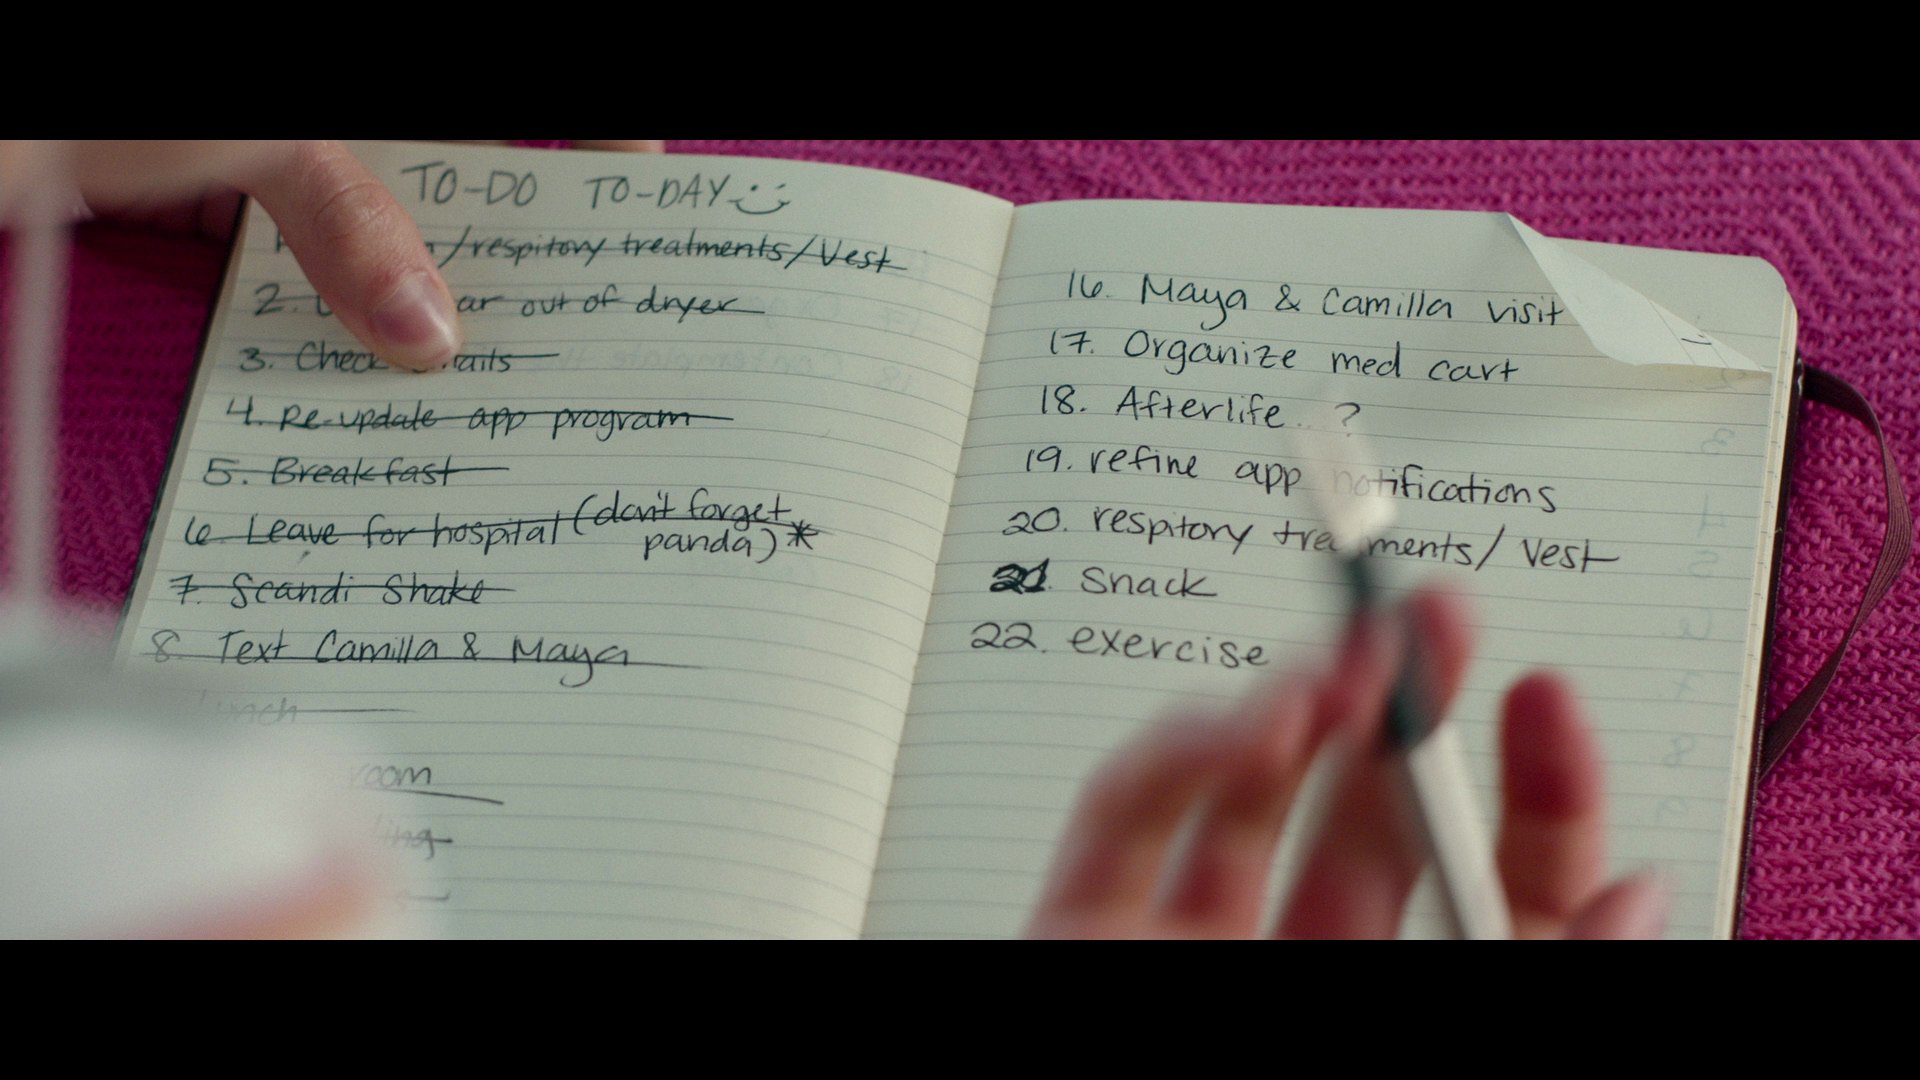 TO-DO TO-DAY
/respitory treatments/Vest
2. out of dryer
3. Check
4. Re-update app program
5. Breakfast
6. Leave for hospital (don't forget
panda)*
7. Scandi Shake
8. Text Camilla & Maya
room
16. Maya & Camilla visit
17. Organize med cart
18. Afterlife..?
19. refine app notifications
20. respitory treatments/Vest
21. Snack
22. exercise